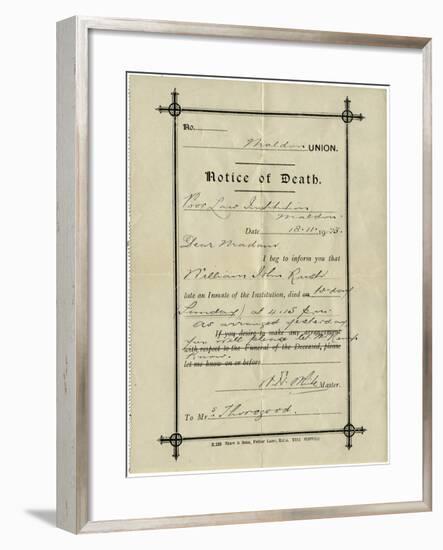 No.
Maldon UNION.
Notice of Death.
Poor Law Institution
Maldon.
Date 18.11.1923.
Dear Madam
I beg to inform you that
William John Rush
late an Inmate of the Institution, died on to-day
(Sunday) at 4.15 p.m.
As arranged yesterday
If you desire to make any arrangement
you will please let Mr
with respect to the Funeral of the Deceased, please
know.
let me know on or before
Master.
To Mrs Thorogood.